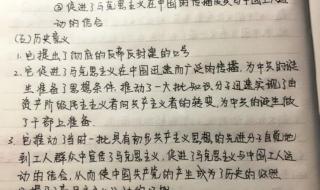 ③促进了马克思主义在中国的传播及其与中国工人运
动的结合
(五)历史意义
1.它提出了彻底的反帝反封建的口号
2.它促进了马克思主义在中国迅速而广泛的传播,为中共的诞
生准备了思想条件,推动了一大批知识分子迅速实现了由
资产阶级民主主义者向共产主义者的转变,为中共的诞生做
了干部上准备。
3.它推动了当时一批具有初步共产主义思想的先进分子自觉地
到工人群众中宣传了马克思主义,促进了马克思主义与中国工人运
动的结合,从而使中国共产党的产生成为了历史的必然